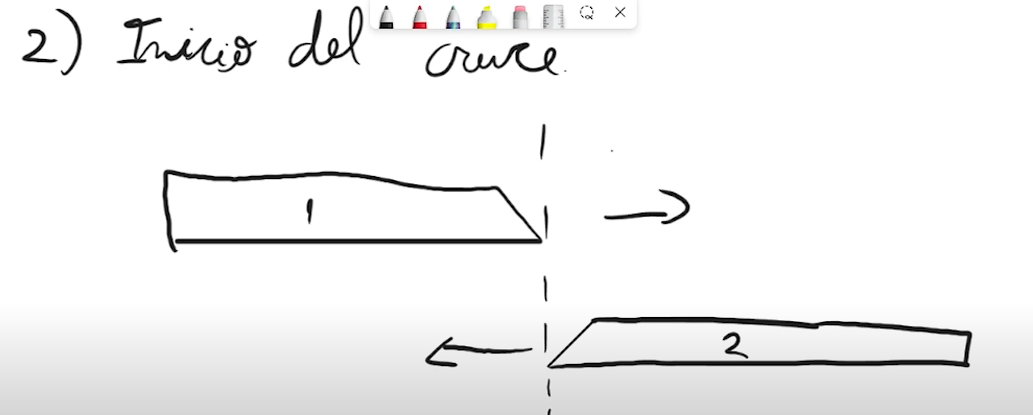 2) Inicio del cruce.
1
2